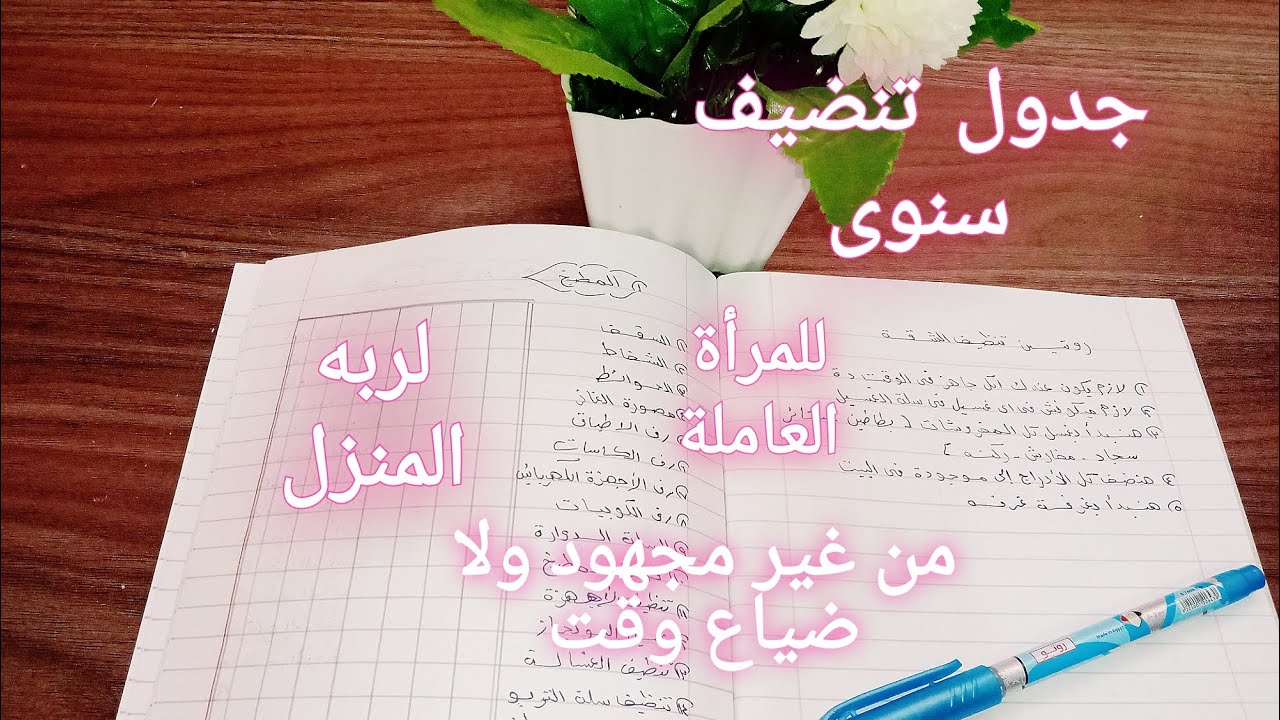 جدول تنضيف
سنوى
للمرأة
العاملة
لربه
المنزل
من غير مجهود ولا
ضياع وقت
روتين تنظيف الشقة
لازم يكون عندك اكل جاهز فى الوقت دة
لازم ميكونش فى اى غسيل فى سلة الغسيل
هنبدأ بغسل كل المفروشات ( بطاطين
سجاد - مفارش -
هنضف كل الأدراج الى موجودة فى البيت
هنبدأ بغرفة غرفه
المطبخ
السقف
الشفاط
الحوائط
ماسورة الغاز
رف الاطباق
رف الكاسات
رف الأجهزة الكهربائى
رف الكوبيات
الدوارة
تنظيف الأجهزة
البوتجاز
تنظيف الغسالة
تنظيف سلة التربو
Made in Egypt
روتو